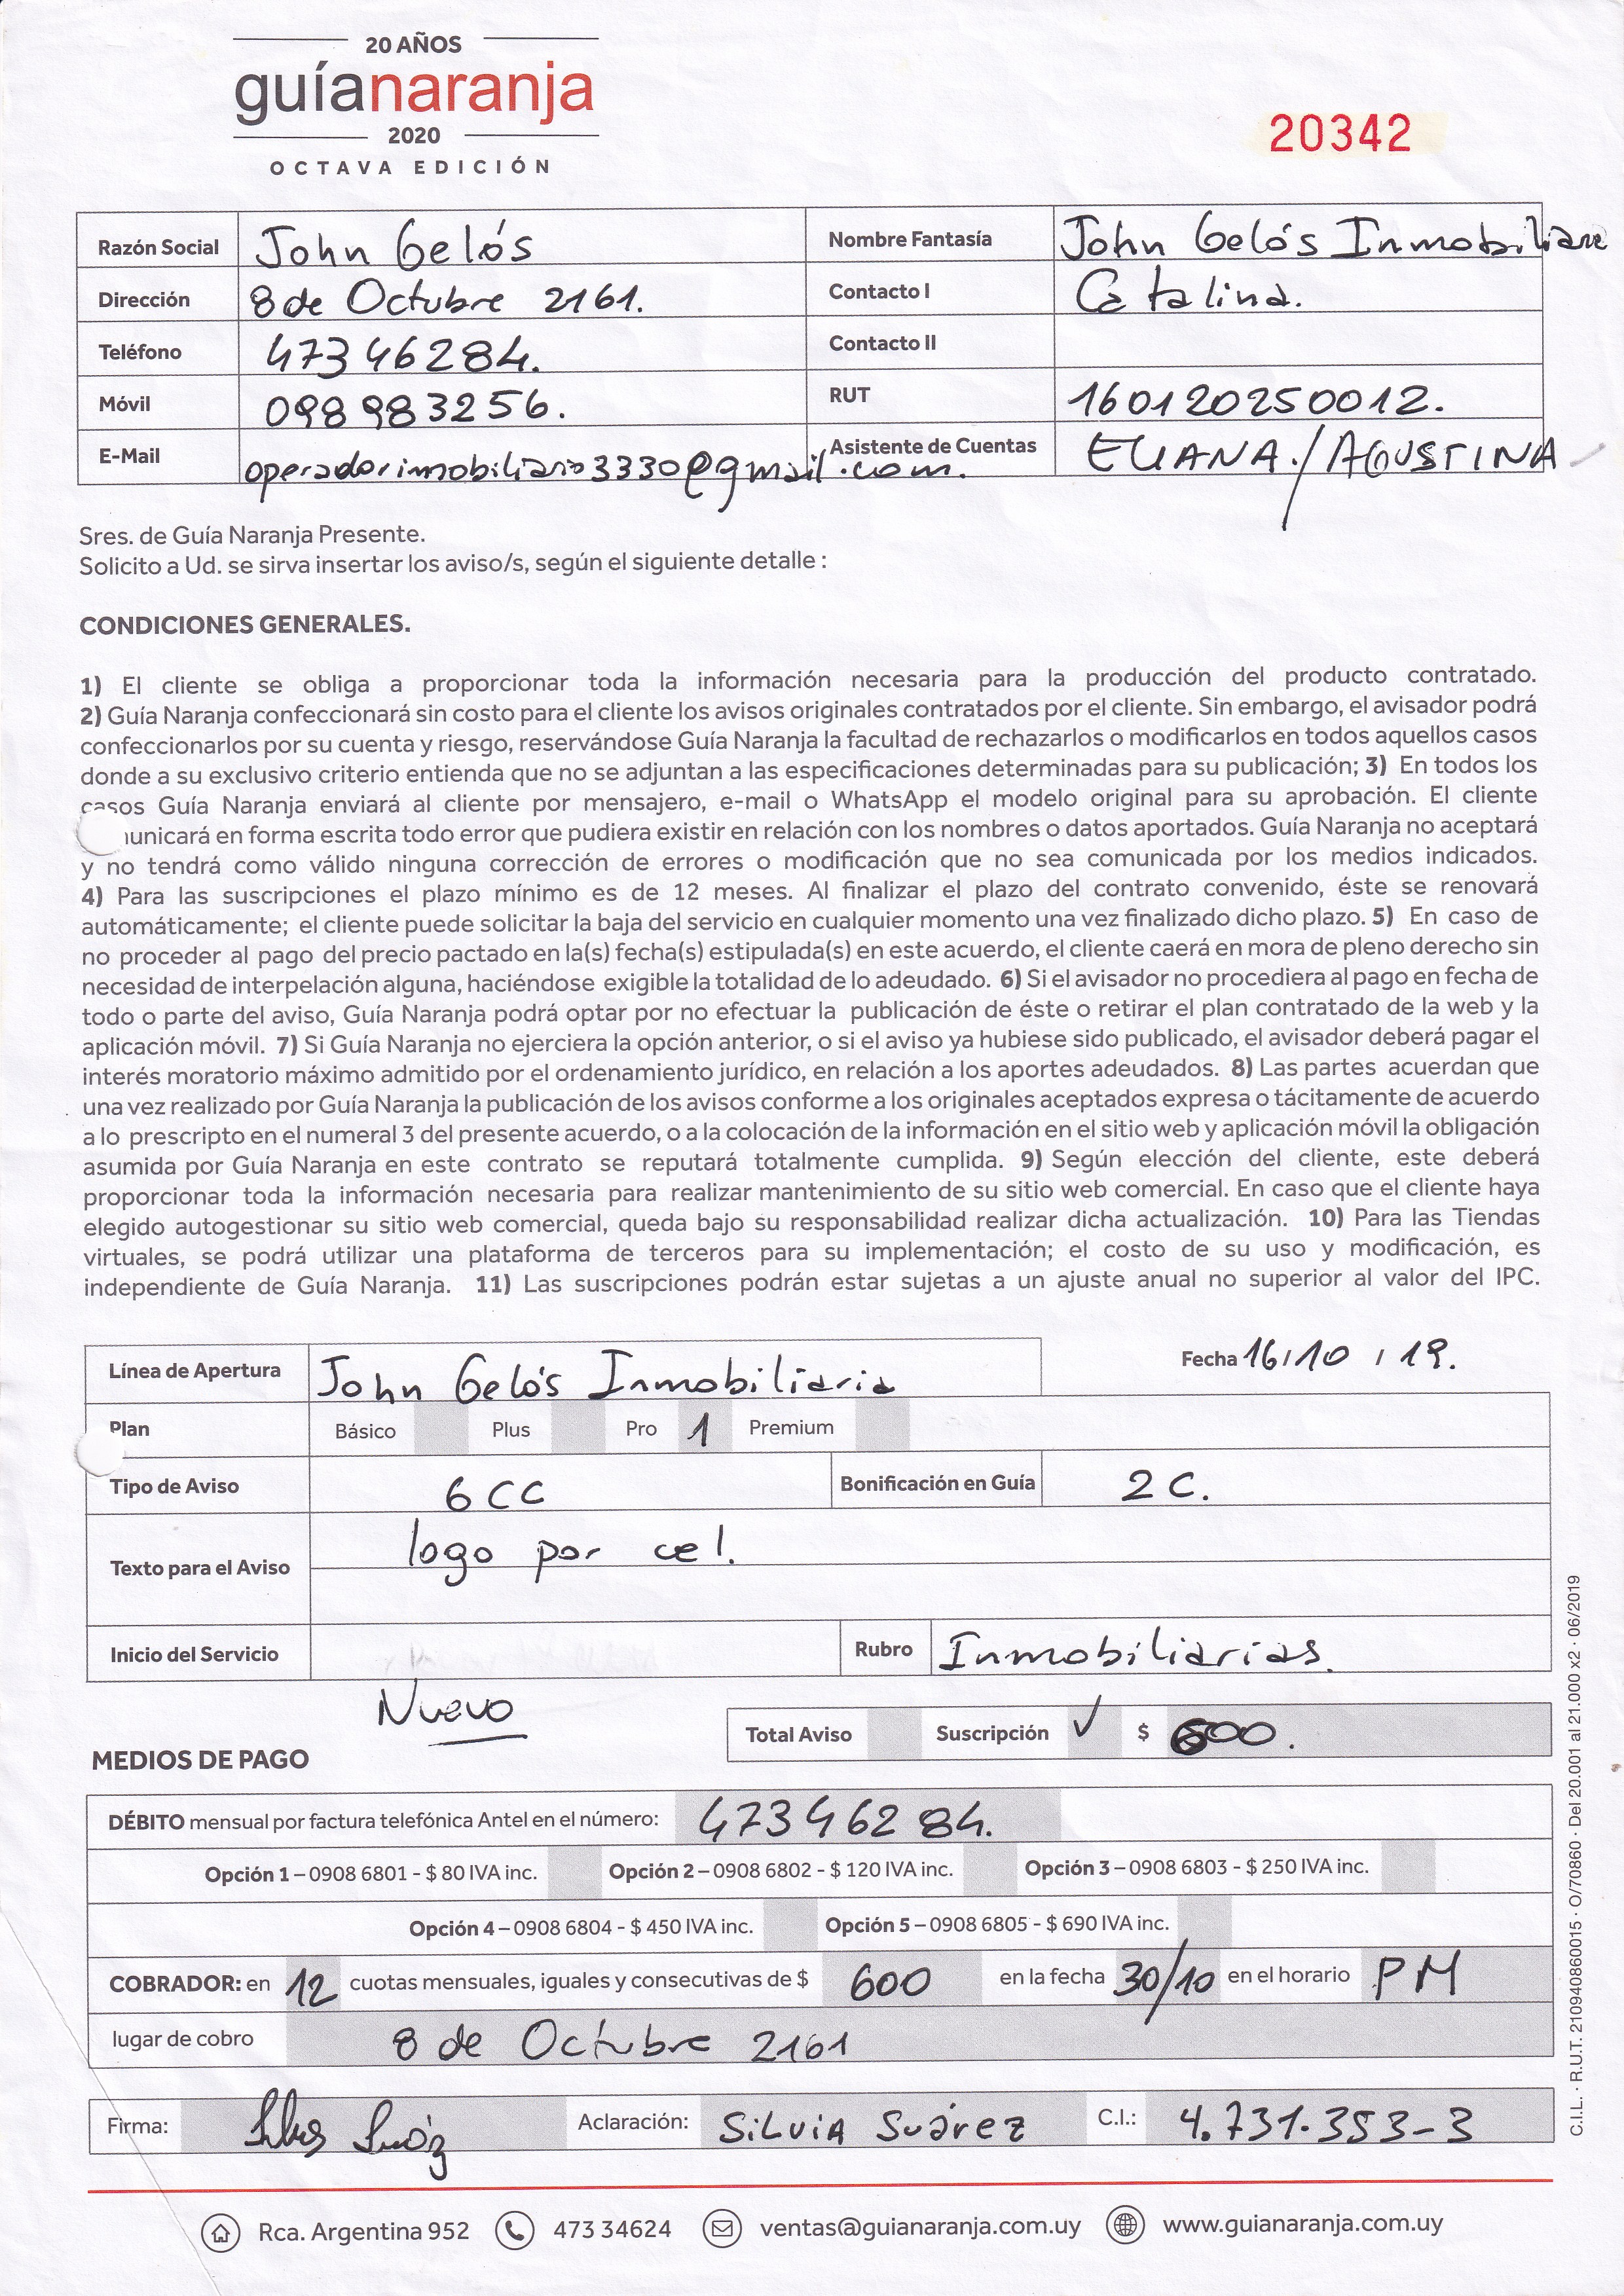 20 AÑOS
guíanaranja
2020
OCTAVA EDICIÓN
20342
Razón Social John Gelós Nombre Fantasía John Gelós Inmobiliaria
Dirección 8 de Octubre 2161. Contacto I Catalina.
Teléfono 47346284. Contacto II
Móvil 098983256. RUT 160120250012.
E-Mail operadorinmobiliario3330@gmail.com. Asistente de Cuentas ELIANA./AGUSTINA
Sres. de Guía Naranja Presente.
Solicito a Ud. se sirva insertar los aviso/s, según el siguiente detalle :
CONDICIONES GENERALES.
1) El cliente se obliga a proporcionar toda la información necesaria para la producción del producto contratado.
2) Guía Naranja confeccionará sin costo para el cliente los avisos originales contratados por el cliente. Sin embargo, el avisador podrá
confeccionarlos por su cuenta y riesgo, reservándose Guía Naranja la facultad de rechazarlos o modificarlos en todos aquellos casos
donde a su exclusivo criterio entienda que no se adjuntan a las especificaciones determinadas para su publicación; 3) En todos los
casos Guía Naranja enviará al cliente por mensajero, e-mail o WhatsApp el modelo original para su aprobación. El cliente
unicará en forma escrita todo error que pudiera existir en relación con los nombres o datos aportados. Guía Naranja no aceptará
y no tendrá como válido ninguna corrección de errores o modificación que no sea comunicada por los medios indicados.
4) Para las suscripciones el plazo mínimo es de 12 meses. Al finalizar el plazo del contrato convenido, éste se renovará
automáticamente; el cliente puede solicitar la baja del servicio en cualquier momento una vez finalizado dicho plazo. 5) En caso de
no proceder al pago del precio pactado en la(s) fecha(s) estipulada(s) en este acuerdo, el cliente caerá en mora de pleno derecho sin
necesidad de interpelación alguna, haciéndose exigible la totalidad de lo adeudado. 6) Si el avisador no procediera al pago en fecha de
todo o parte del aviso, Guía Naranja podrá optar por no efectuar la publicación de éste o retirar el plan contratado de la web y la
aplicación móvil. 7) Si Guía Naranja no ejerciera la opción anterior, o si el aviso ya hubiese sido publicado, el avisador deberá pagar el
interés moratorio máximo admitido por el ordenamiento jurídico, en relación a los aportes adeudados. 8) Las partes acuerdan que
una vez realizado por Guía Naranja la publicación de los avisos conforme a los originales aceptados expresa o tácitamente de acuerdo
a lo prescripto en el numeral 3 del presente acuerdo, o a la colocación de la información en el sitio web y aplicación móvil la obligación
asumida por Guía Naranja en este contrato se reputará totalmente cumplida. 9) Según elección del cliente, este deberá
proporcionar toda la información necesaria para realizar mantenimiento de su sitio web comercial. En caso que el cliente haya
elegido autogestionar su sitio web comercial, queda bajo su responsabilidad realizar dicha actualización. 10) Para las Tiendas
virtuales, se podrá utilizar una plataforma de terceros para su implementación; el costo de su uso y modificación, es
independiente de Guía Naranja. 11) Las suscripciones podrán estar sujetas a un ajuste anual no superior al valor del IPC.
Línea de Apertura John Gelós Inmobiliaria Fecha 16/10/19.
Plan Básico Plus Pro 1 Premium
Tipo de Aviso 6 CC Bonificación en Guía 2 C.
Texto para el Aviso logo por cel.
Inicio del Servicio Rubro Inmobiliarias.
Nuevo
Total Aviso Suscripción ✓ $ 600.
MEDIOS DE PAGO
DÉBITO mensual por factura telefónica Antel en el número: 47346284.
Opción 1 – 0908 6801 - $ 80 IVA inc. Opción 2 – 0908 6802 - $ 120 IVA inc. Opción 3 – 0908 6803 - $ 250 IVA inc.
Opción 4 – 0908 6804 - $ 450 IVA inc. Opción 5 – 0908 6805 - $ 690 IVA inc.
COBRADOR: en 12 cuotas mensuales, iguales y consecutivas de $ 600 en la fecha 30/10 en el horario PM
lugar de cobro 8 de Octubre 2161
Firma: Aclaración: SILVIA Suárez C.I.: 4.731.353-3
Rca. Argentina 952 473 34624 ventas@guianaranja.com.uy www.guianaranja.com.uy
C.I.L. · R.U.T. 210940860015 · O/70860 · Del 20.001 al 21.000 x2 · 06/2019